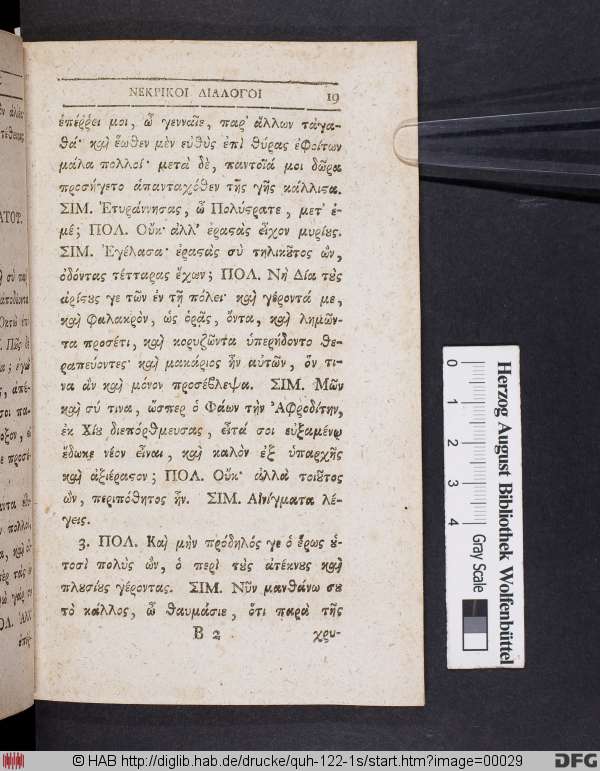 ΝΕΚΡΙΚΟΙ ΔΙΑΛΟΓΟΙ 19
ἐπέῤῥει μοι, ὦ γενναῖε, παρ' ἄλλων τἀγα-
θά· καὶ ἕωθεν μὲν εὐθὺς ἐπὶ θύρας ἐφοίτων
μάλα πολλοί· μετὰ δὲ, παντοῖά μοι δῶρα
προσήγετο ἁπανταχόθεν τῆς γῆς κάλλιςα.
ΣΙΜ. Ἐτυράννησας, ὦ Πολύςρατε, μετ' ἐ-
μέ; ΠΟΛ. Οὔκ· ἀλλ' ἐραςὰς εἶχον μυρίους.
ΣΙΜ. Ἐγέλασα· ἐραςὰς σὺ τηλικοῦτος ὢν,
ὀδόντας τέτταρας ἔχων; ΠΟΛ. Νὴ Δία τοὺς
ἀρίςους γε τῶν ἐν τῇ πόλει· καὶ γέροντά με,
καὶ Φαλακρὸν, ὡς ὁρᾷς, ὄντα, καὶ λημῶν-
τα προσέτι, καὶ κορυζῶντα ὑπερήδοντο θε-
ραπεύοντες· καὶ μακάριος ἦν αὐτῶν, ὅν τι-
να ἂν καὶ μόνον προσέβλεψα. ΣΙΜ. Μῶν
καὶ σύ τινα, ὥσπερ ὁ Φάων τὴν Ἀφροδίτην,
ἐκ Χίου διεπόρθμευσας, εἶτά σοι εὐξαμένῳ
ἔδωκε νέον εἶναι, καὶ καλὸν ἐξ ὑπαρχῆς
καὶ ἀξιέραςον; ΠΟΛ. Οὔκ· ἀλλὰ τοιοῦτος
ὢν, περιπόθητος ἦν. ΣΙΜ. Αἰνίγματα λέ-
γεις.
3. ΠΟΛ. Καὶ μὴν πρόδηλός γε ὁ ἔρως οὑ-
τοσὶ πολὺς ὢν, ὁ περὶ τοὺς ἀτέκνους καὶ
πλουσίους γέροντας. ΣΙΜ. Νῦν μανθάνω σου
τὸ κάλλος, ὦ θαυμάσιε, ὅτι παρὰ τῆς
B 2 χρυ-
0 1 2 3 4
Herzog August Bibliothek Wolfenbüttel
Gray Scale
© HAB http://diglib.hab.de/drucke/quh-122-1s/start.htm?image=00029
DFG